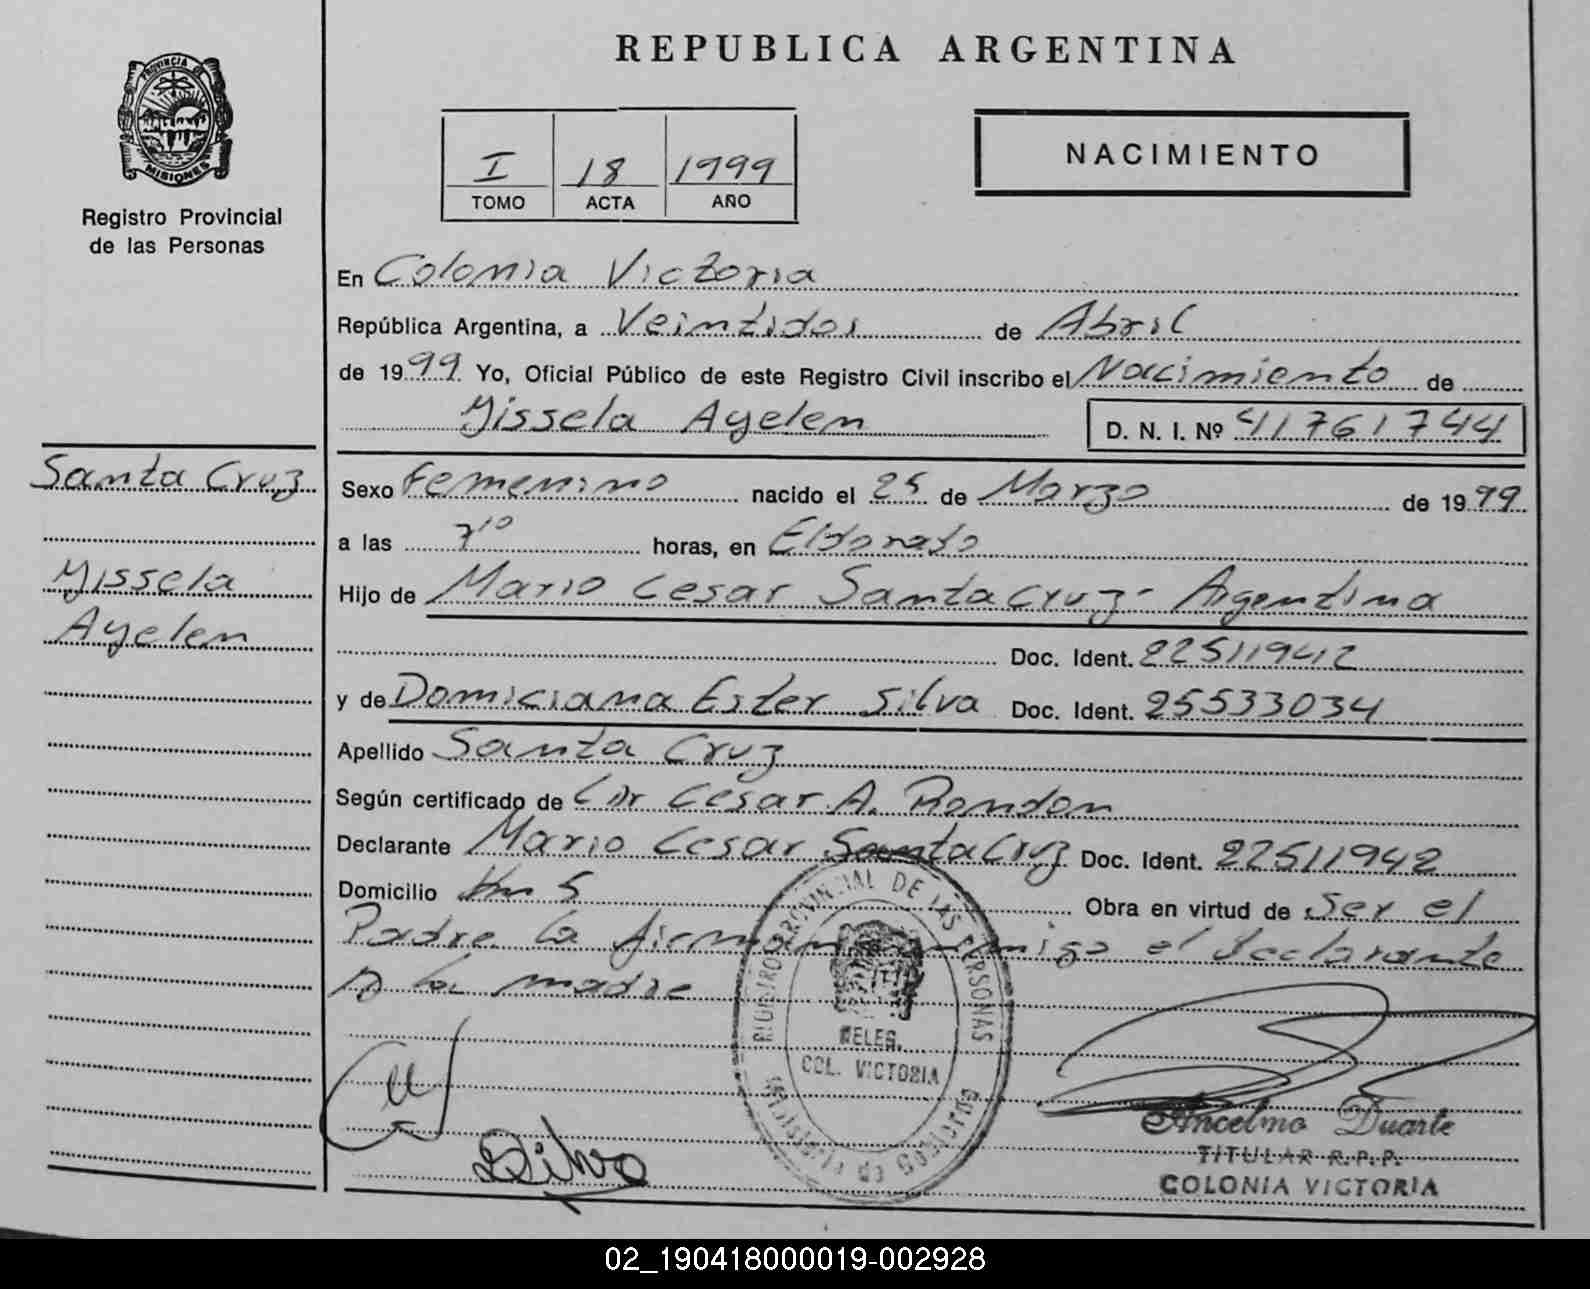 PROVINCIA DE
MISIONES
Registro Provincial
de las Personas
REPUBLICA ARGENTINA
I 18 1999
TOMO ACTA AÑO
NACIMIENTO
En Colonia Victoria
República Argentina, a Veintidos de Abril
de 1999 Yo, Oficial Público de este Registro Civil inscribo el Nacimiento de
Yissela Ayelen D. N. I. Nº 41761744
Santa Cruz
Yissela
Ayelen
Sexo Femenino nacido el 25 de Marzo de 1999
a las 7¹⁰ horas, en Eldorado
Hijo de Mario Cesar Santa Cruz - Argentina
Doc. Ident. 22511942
y de Domiciana Ester Silva Doc. Ident. 25533034
Apellido Santa Cruz
Según certificado de Cesar A. Rondon
Declarante Mario Cesar Santa Cruz Doc. Ident. 22511942
Domicilio Km 5 Obra en virtud de Ser el
Padre. La firman conmigo el declarante
y la madre
REGISTRO PROVINCIAL DE LAS PERSONAS
DELEG.
COL. VICTORIA
Silva
Ancelmo Duarte
TITULAR R.P.P.
COLONIA VICTORIA
02_190418000019-002928